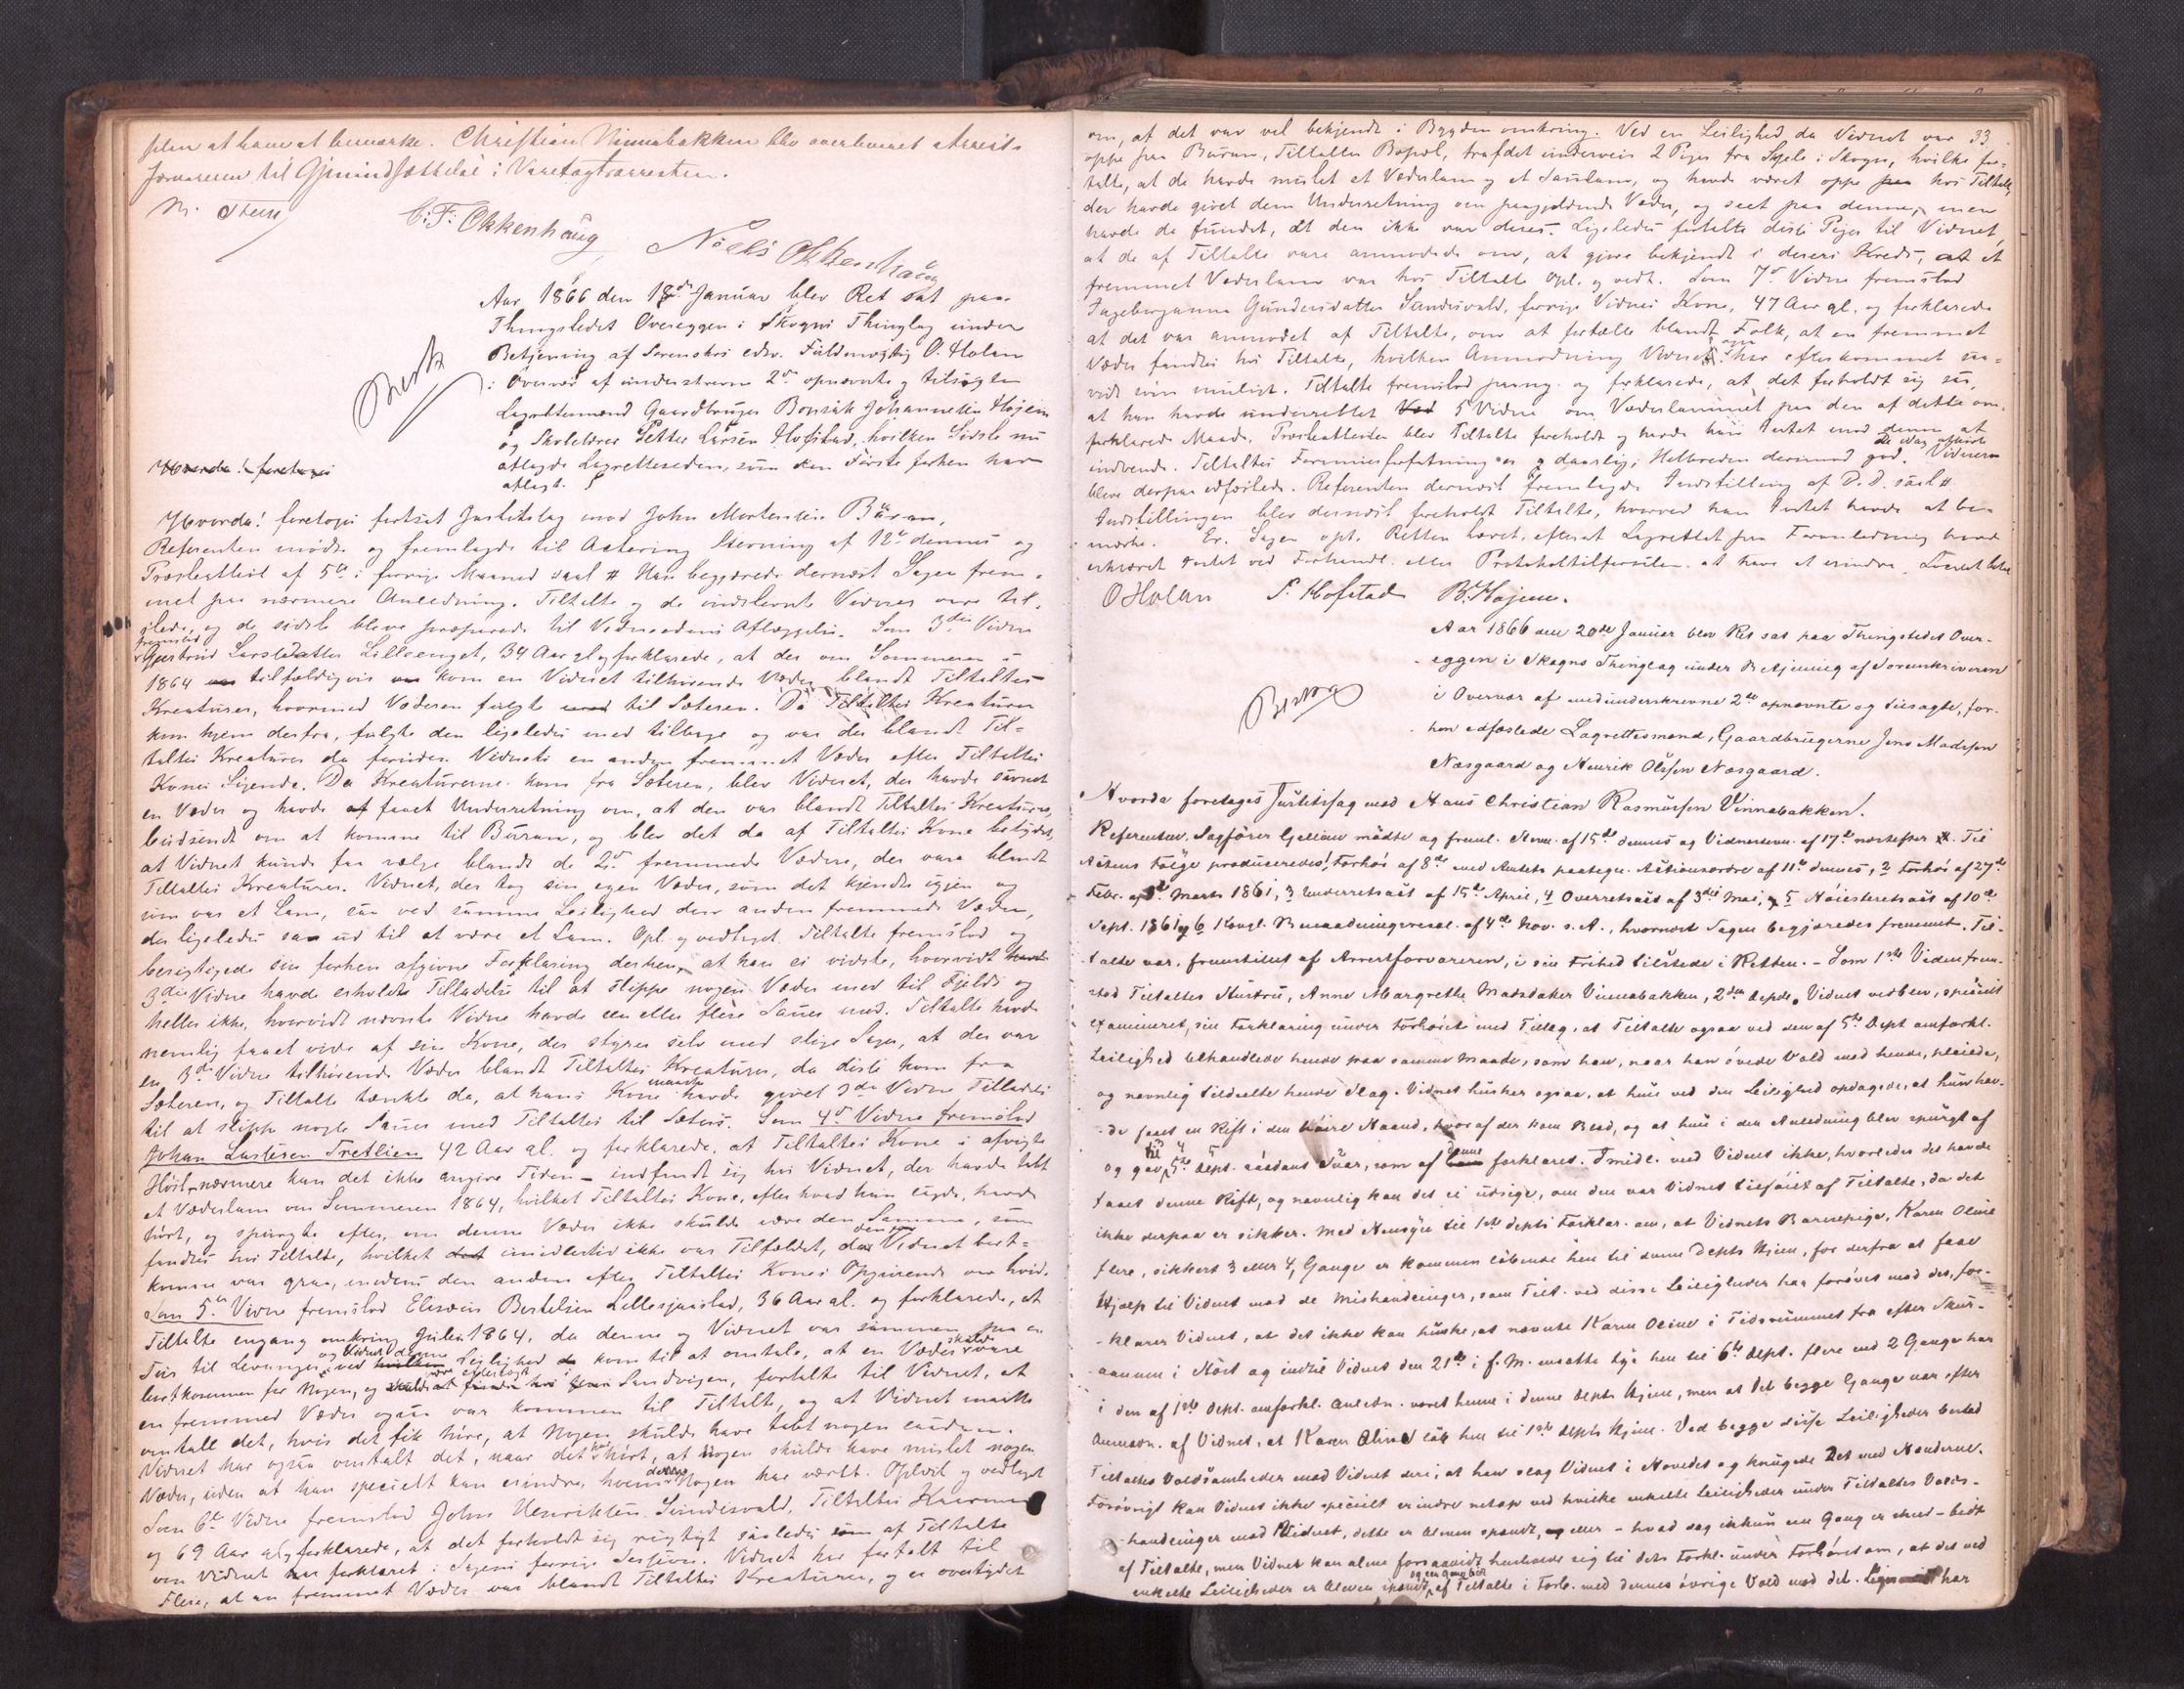 at have at bemærke. Christian Vinnabakken blev overleveret Arrest-
forvareren til Gjenindsættelse i Varetægtsarresten.
C: F: Okkenhaug Niels Okkenhaug
Aar 1866 den 18de Januar blev Ret sat paa
Thingstedet Overeggen i Skogns Thinglag under
Betjening af Sorenskr. edsv. Fuldmægtig O. Holan
i Overvær af underskrevne 2de opnævnte og tilsagte
Lagrettemænd Gaardbruger Johannesen Højem
og Skolelærer Petter Larsen Hofstad, hvilken Sidste nu
aflagde Lagretteseden, som den Første forhen har
aflagt.
Hvorda! foretages
Hvorda! foretoges fortsat Justitssag mod John Mortensen Buran,
Referenten mødte og fremlagde til Actering Stevning af 12te dennes og
Præsteattest af 5te i forrige Maaned saal. # Han begjærede dernæst Sagen frem-
met paa nærmere Anledning. Tiltalte og de indstevnte Vidner vare til-
stede, og de sidste bleve præparerede til Vidneedens Aflæggelse. Som 3die Vidne
fremstod
Gjertrud Larsdatter Lilleenget, 34 Aar gl. og forklarede, at der om Sommeren i
1864 tilfældigvis kom en Vidnet tilhørende Væder blandt Tiltaltes
Kreaturer, hvormed Væderen fulgte til Sæteren. Da Tiltaltes Kreaturer
kom hjem derfra, fulgte den ligeledes med tilbage og var der blandt Til-
taltes Kreaturer da foruden Vidnets en anden fremmet Væder efter Tiltaltes
Kones Sigende. Da Kreaturerne kom fra Sæteren, blev Vidnet, der havde savnet
en Væder og havde faaet Underretning om, at den var blandt Tiltaltes Kreaturer,
budsendt om at komme til Buran, og blev det da af Tiltaltes Kone betydet,
at Vidnet kunde faa vælge blandt de 2de fremmede Vædere, der vare blandt
Tiltaltes Kreaturer. Vidnet, der tog sin egen Væder, som det kjendte igjen og
som var et Lam, saa ved samme Leilighed den anden fremmede Væder,
der ligeledes saa ud til at være et Lam. Opl. og vedtaget. Tiltalte fremstod og
berigtigede sin forhen afgivne Forklaring derhen, at han ei vidste, hvorvidt
3die Vidne havde erholdt Tilladelse til at slippe nogen Væder med til Fjelds og
heller ikke, hvorvidt nævnte Vidne havde een eller flere Sauer med. Tiltalte havde
nemlig faaet vide af sin Kone, der styrer selv med slige Sager, at der var
en 3die Vidne tilhørende Væder blandt Tiltaltes Kreaturer, da disse kom fra
Sæteren, og Tiltalte tænkte da, at hans Kone maaske havde givet 3die Vidne Tilladelse
til at slippe nogle Sauer med Tiltaltes til Sæters. Som 4de Vidne fremstod
Johan Larsen Tretlien 42 Aar gl. og forklarede, at Tiltaltes Kone i afvigte
Høst – nærmere kan det ikke angive Tiden – indfandt sig hos Vidnet, der havde tabt
et Væderlam om Sommeren 1864, hvilket Tiltaltes Kone, efter hvad hun sagde, havde
hørt, og spurgte efter, om denne Væder ikke skulde være den Samme, som
fandtes hos Tiltalte, hvilket imidlertid ikke var Tilfældet, da den for Vidnet bort-
komne var graa, medens den anden efter Tiltaltes Kones Opgivende var hvid.
Som 5te Vidne fremstod Elisæus Bertelsen Lillesjaastad, 36 Aar gl. og forklarede, at
Tiltalte engang omkring Juletid 1864, da denne og Vidnet var sammen paa en
Tur til Levanger, og Vidnet ved denne Leilighed kom til at omtale, at en Væder skulde være
bortkommen for Nogen, og være eftersøgt i Sandvigen, fortalte til Vidnet, at
en fremmed Væder ogsaa var kommen til Tiltalte, og at Vidnet maatte
omtale det, hvis det fik høre, at Nogen skulde have tabt nogen saadan.
Vidnet har ogsaa omtalt det, naar det har hørt, at Nogen skulde have mistet nogen
Væder, uden at han specielt kan erindre, hvem denne Nogen har været. Oplæst og vedtaget
Som 6te Vidne fremstod John Henriksen Sundisvald, Tiltaltes
og 69 Aar gl. og forklarede, at det forholdt sig rigtigt saaledes som af Tiltalte
om Vidnet er forklaret i Sagens forrige Session. Vidnet har fortalt til
Flere, at en fremmet Væder var blandt Tiltaltes Kreaturer, og er overtydet
33
om, at det var vel bekjendt i Bygden omkring. Ved en Leilighed, da Vidnet var
oppe paa Buran, Tiltaltes Bopæl, traf det underveis 2 Piger fra i Skogn, hvilke for-
talte, at de havde mistet et Væderlam og et Saulam, og havde været oppe hos Tiltalte,
der havde givet dem Underretning om paagjældende Væder, og seet paa denne, men
havde de fundet, at den ikke var deres. Ligeledes fortalte disse Piger til Vidnet,
at de af Tiltalte vare anmodede om, at gjøre bekjendt i deres Kreds, at et
fremmet Væderlam var hos Tiltalte. Opl. og vedt. Som 7de Vidne fremstod
Ingeborganna Gundersdatter Sundisvald, forrige Vidnes Kone, 47 Aar gl. og forklarede
at det var anmodet af Tiltalte, om at fortælle blandt Folk, at en fremmet
Væder fandtes hos Tiltalte, hvilken Anmodning Vidnet ogsaa har efterkommet saa-
vidt som muligt. Tiltalte fremstod paany og forklarede, at det forholdt sig saa,
at han havde underrettet 5 Vidne om Væderlammet paa den af dette om-
forklarede Maade. Præsteattesten blev Tiltalte foreholdt og havde han Intet mod denne at
indvende. Tiltaltes Formuesforfatning er daarlig; Helbreden derimod god. De idag afhørte Vidner
bleve derpaa edfæstede. Referenten dernæst fremlagde Indstilling af D. D. saal. #
Indstillingen blev dernæst foreholdt Tiltalte, hvorved han Intet havde at be-
mærke. Er. Sagen opt. Retten hævet, efterat Lagrettet paa Foranledning havde
erklæret Intet ved Forhandl. eller Protokoltilførselen at have at erindre.
OHolan P. Hofstad B. Højem.
Aar 1866 den 20de Januar blev Ret sat paa Thingstedet Over-
eggen i Skogns Thinglag under Betjening af Sorenskriveren
i Overvær af medunderskrevne 2de opnævnte og tilsagte, for-
hen edfæstede Lagrettesmænd, Gaardbrugerne Jens Madssen
Næsgaard og Henrik Olsen Næsgaard.
Hvorda foretages Justitssag mod Hans Christian Rasmussen Vinnabakken!
Referenten, Sagfører Gjelline mødte og freml. Stevn. af 15de dennes og Vidnestevn. af 17de næstefter #. Til
Actens Følge produceredes 1, Forhør af 8de med Amtets paategn. Actionsordre af 11te dennes, 2 Forhør af 27de
Febr. og Marts 1861, 3 Underretsact af 15de April, 4 Overretsact af 3die Mai, 5 Høiesteretsact af 10de
Sept. 1861 og 6 Kongl. Benaadningsresol. af 4de Nov. s. A., hvornæst Sagen begjæredes fremmet. Til-
talte var, fremstillet af Arrestforvareren, i sin Frihed tilstede i Retten. – Som 1ste Vidne frem-
stod Tiltaltes Hustru, Anne Margrethe Madsdatter Vinnabakken, 2den Depdt. Vidnet vedblev, specielt
examineret, sin Forklaring under Forhøret med Tillæg, at Tiltalte ogsaa ved den af 5te Dept. omforkl.
Leilighed behandlede hende paa samme Maade, som han, naar han øvede Vold mod hende, pleiede,
og navnlig tildeelte hende Slag. Vidnet husker ogsaa, at hun ved den Leilighed opdagede, at hun hav-
de faaet en Rift i den høire Haand, hvoraf der kom Blod, og at hun i den Anledning blev spurgt af
og gav til 4 og 5te Dept. saadant Svar, som af denne forklaret. Imidl. veed Vidnet ikke, hvorledes det havde
faaet denne Rift, og navnlig kan det ei udsige, om den var Vidnet tilføiet af Tiltalte, da det
ikke derpaa er sikker. Med Hensyn til 1ste Depts Forklar. om, at Vidnets Barnepige, Karen Oline
flere, sikkert 3 eller 4, Gange er kommen løbende hen til denne Depts Hjem, for derfra at faae
Hjælp til Vidnet mod de Mishandlinger, som Tilt. ved disse Leiligheder har forøvet mod det, for-
klarer Vidnet, at det ikke kan huske, at nævnte Karen Oline i Tidsrummet fra efter Skur-
aannen i Høst og indtil Vidnet den 21de i f. M. maatte tye hen til 6te Dept. flere end 2 Gange har
i den af 1ste Dept. omforkl. Anledn. været henne i denne Depts Hjem, men at det begge Gange var efter
Anmodn. af Vidnet, at Karen Oline løb hen til 1ste Depts Hjem. Ved begge disse Leiligheder bestod
Tiltaltes Voldsomheder mod Vidnet deri, at han slog Vidnet i Hovedet og knugede Det med Hænderne.
Forøvrigt kan Vidnet ikke specielt erindre netop ved hvilke enkelte Leiligheder under Tiltaltes Volds-
handlinger mod Vidnet, dette er bleven spændt, eller – hvad dog ikkun een Gang er skeet – bidt
af Tiltalte, men Vidnet kan alene forsaavidt henholde sig til dets Forkl. under Forhøret om, at det ved
enkelte Leiligheder er bleven spændt og en Gang bidt af Tiltalte i Forb. med dennes øvrige Vold mod det. har